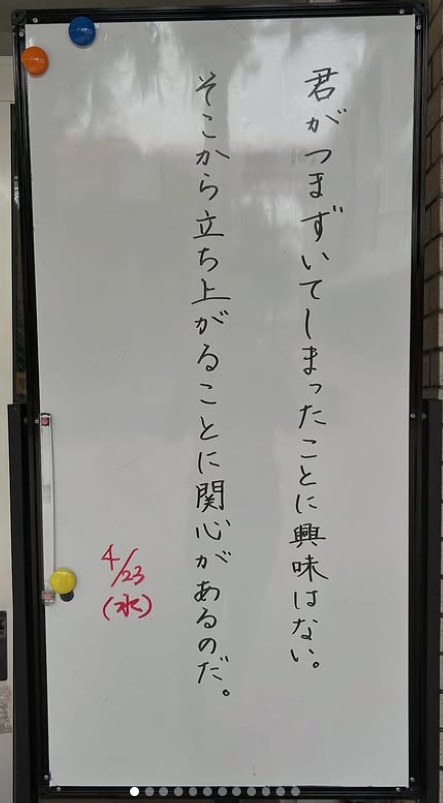 君がつまずいてしまったことに興味はない。
そこから立ち上がることに関心があるのだ。
4/23
(水)